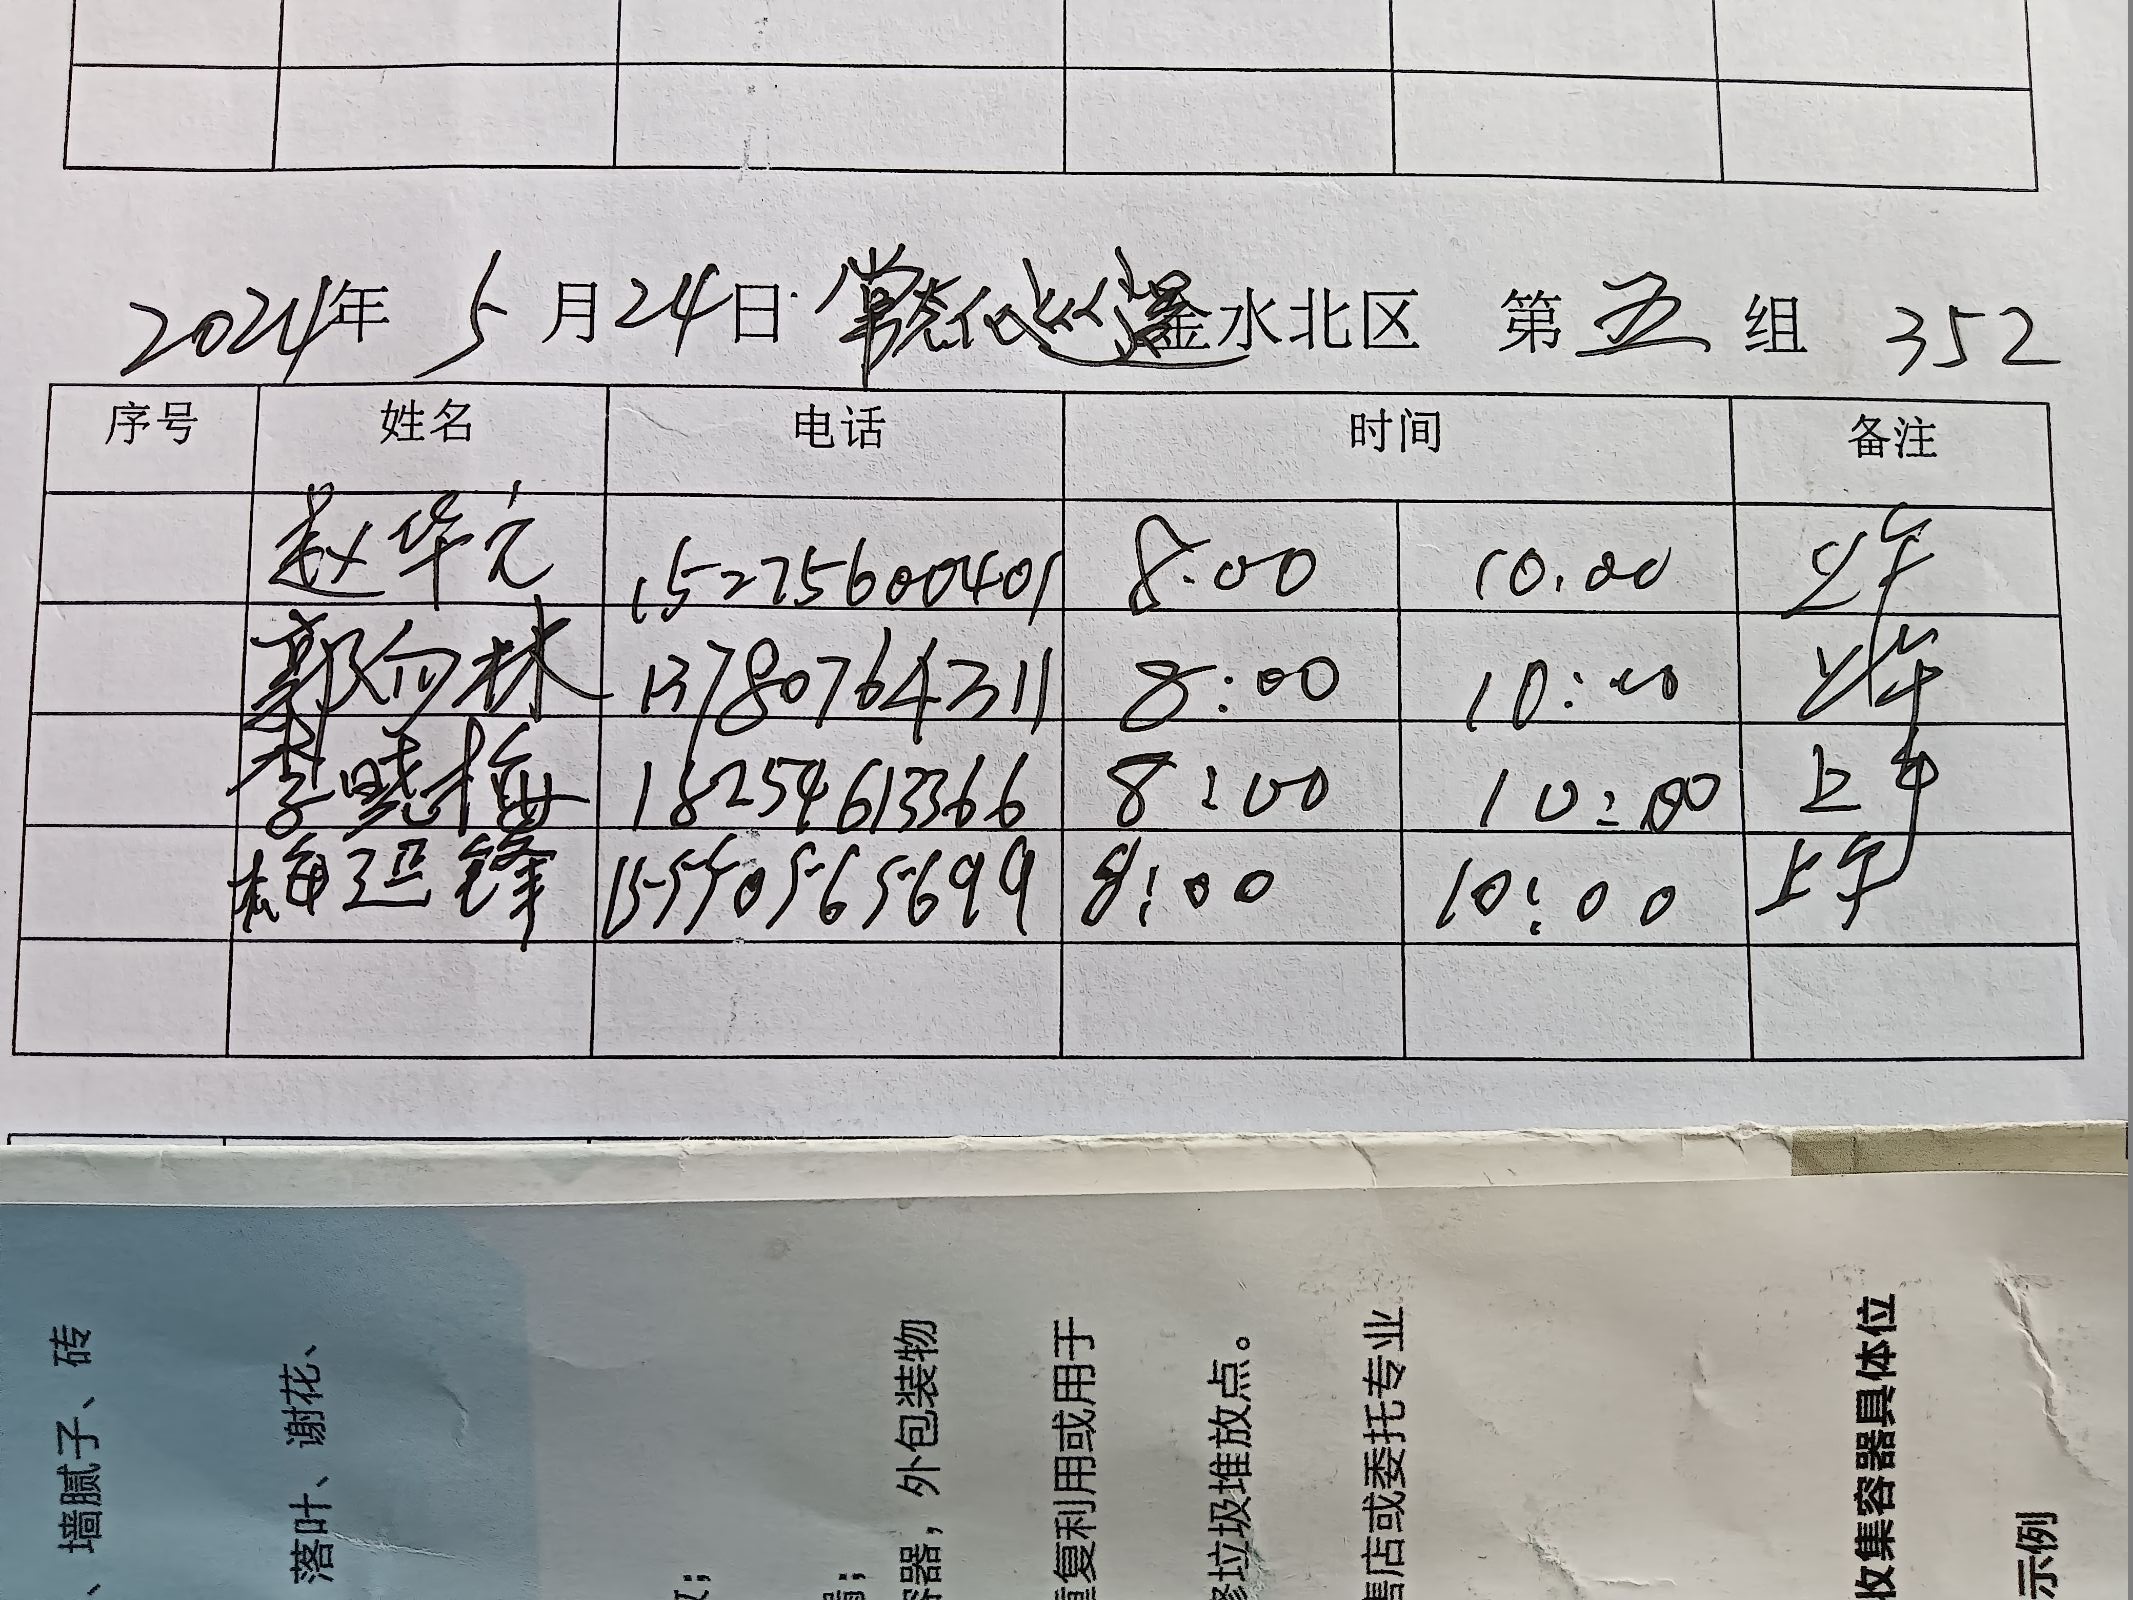 2024年 5月24日 金水北区 第五组 352
序号 姓名 电话 时间 备注
赵华元 15275600401 8:00 10:00 上午
郭向林 13780764311 8:00 10:00 上午
李晓梅 18254613366 8:00 10:00 上午
梅延锋 15550565699 8:00 10:00 上午
、墙腻子、砖
落叶、谢花、
容器，外包装物
重复利用或用于
修垃圾堆放点。
售店或委托专业
收集容器具体位
示例